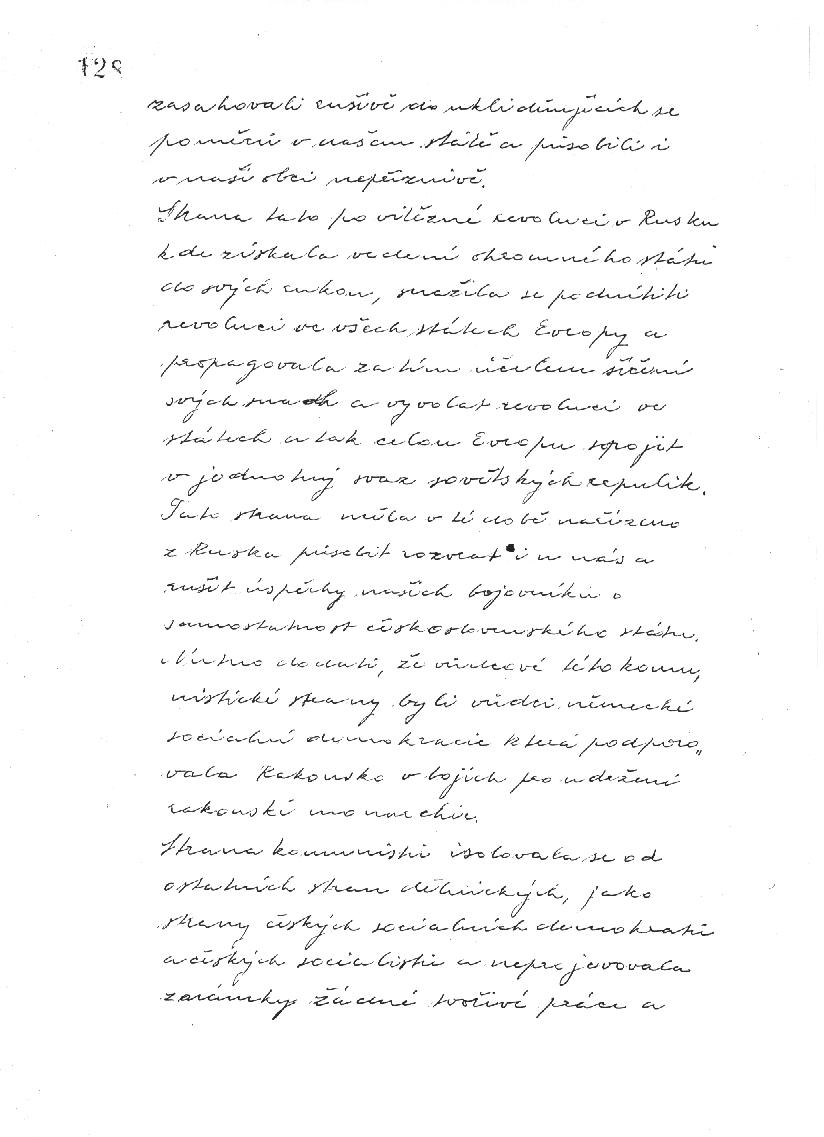 128
zasahovali rušivě do uklidňujících se
poměrů v našem státě a působili i
v naší obci nepříznivě.
Strana tato po vítězné revoluci v Rusku
kde získala vedení ohromného státu
do svých rukou, snažila se podnítiti
revoluci ve všech státech Evropy a
propagovala za tím účelem šíření
svých snah a vyvolat revoluci ve
státech a tak celou Evropu spojit
v jednotný svaz sovětských republik.
Tato strana měla v té době nařízeno
z Ruska působit rozvrat i u nás a
rušit úspěchy našich bojovníků o
samostatnost československého státu.
Nutno dodati, že vůdcové této komu„
nistické strany byli vůdci německé
sociální demokracie která podporo„
vala Rakousko v bojích po udržení
rakouské monarchie.
Strana komunistů isolovala se od
ostatních stran dělnických, jako
strany českých sociálních demokratů
a českých socialistů a neprojevovala
žádné tvořivé práce a